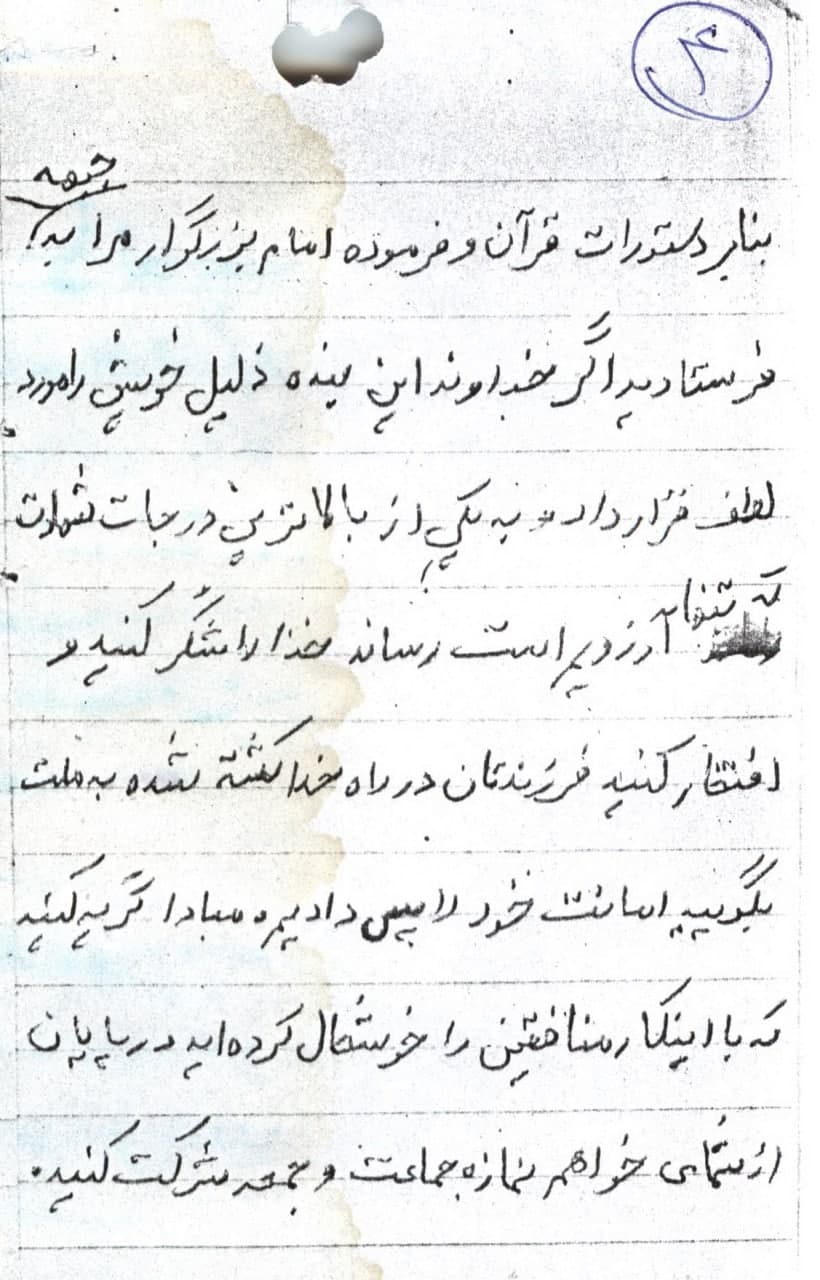 جبهه
بنابر دستورات قرآن و فرموده امام بزرگوار مرا به
فرستادید اگر خداوند این بنده ذلیل خویش را مورد
لطف قرار داد و به یکی از بالاترین درجات شهادت
که تنها
آرزویم است رساند خدا را شکر کنید و
افتخار کنید فرزندتان در راه خدا کشته شده به ملت
بگویید امانت خود را پس دادیم، مبادا گریه کنید
که با اینکار منافقین را خوشحال کرده‌اید در پایان
از شما می خواهم نمازه جماعت و جمعه شرکت کنید.